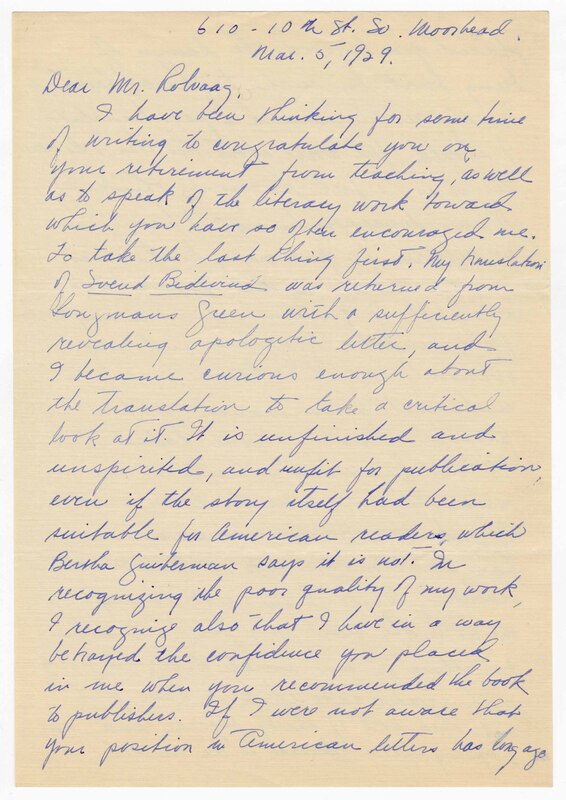 610 - 10th St. So. Moorhead.
Mar. 5, 1929.
Dear Mr. Rolvaag,
I have been thinking for some time
of writing to congratulate you on
your retirement from teaching, as well
as to speak of the literary work toward
which you have so often encouraged me.
To take the last thing first. My translation
of Svend Bidevind was returned from
Longmans Green with a sufficiently
revealing apologetic letter, and
I became curious enough about
the translation to take a critical
look at it. It is unfinished and
unspirited, and unfit for publication,
even if the story itself had been
suitable for American readers, which
Bertha says it is not. In
recognizing the poor quality of my work,
I recognize also that I have in a way
betrayed the confidence you placed
in me when you recommended the book
to publishers. If I were not aware that
your position in American letters has long ago